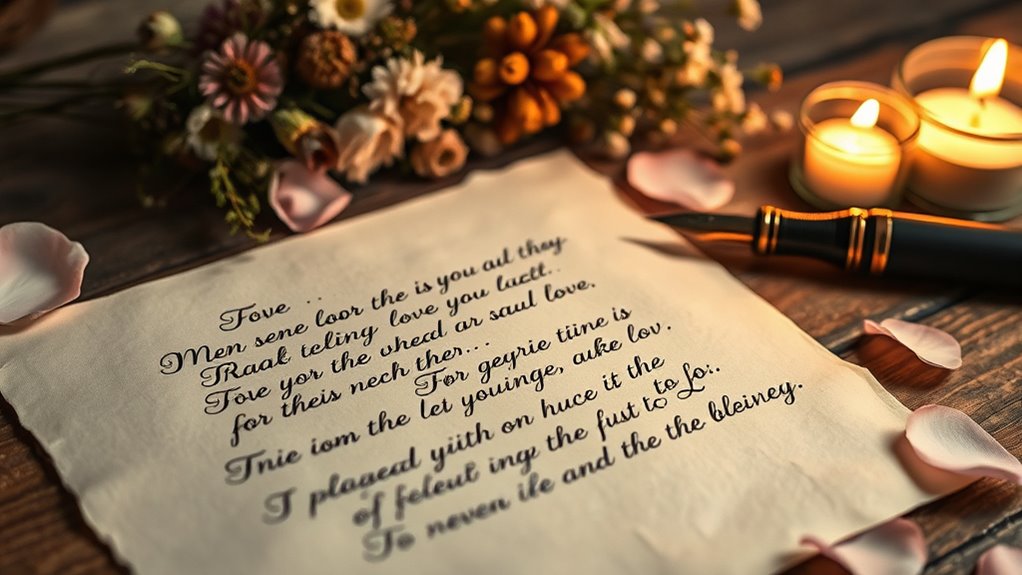 Fove ..
Men sene loor the is you ad they
Raak teling love you luctt..
Tore yor the uhead ar saul love.
for theis nech ther...
For geyrie tiine is
Tnie iom the let youinge, auke lov.
I plagead yiith on huce it the
of feleut inge the fust to Lo:.
To neven ife and the the bleiney.